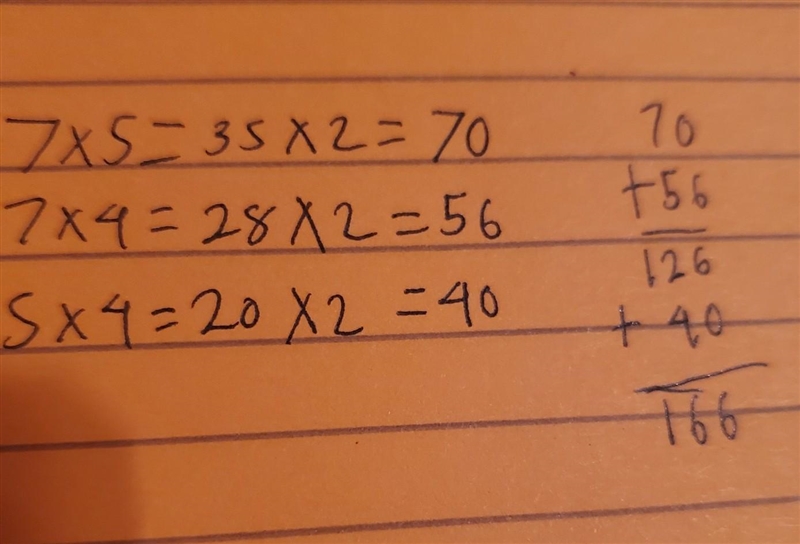 7x5=35x2=70
7x4=28x2=56
5x4=20x2=40
70
+56
126
+40
166